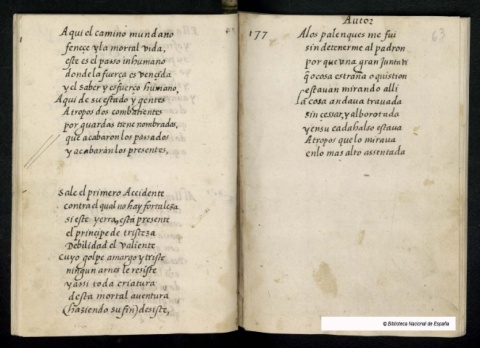 Aqui el camino mundano
fenece y la mortal vida,
este es el passo inhumano
donde la fuerça es vencida
y el saber y esfuerço humano,
Aqui de su estado y gentes
Atropos dos combatientes
por guardas tiene nombrados,
que acabaron los passados
y acabarán los presentes.
Sale el primero Accidente
contra el qual no hay fortaleza
si este yerra, está presente
el principe de tristeza
Debilidad el valiente
Cuyo golpe amargo y triste
ningun arnes le resiste
y assi toda criatura
desta mortal aventura
(haziendo su fin) desiste,
63
Autor
177
A los palenques me fui
sin detenerme al padron
por que una gran junta vi
q̃ cosa estraña o quistion
estavan mirando alli
La cosa andava travada
sin cessar, y alborotada
y en su cadahalso estava
Atropos que lo mirava
en lo mas alto assentada
© Biblioteca Nacional de España